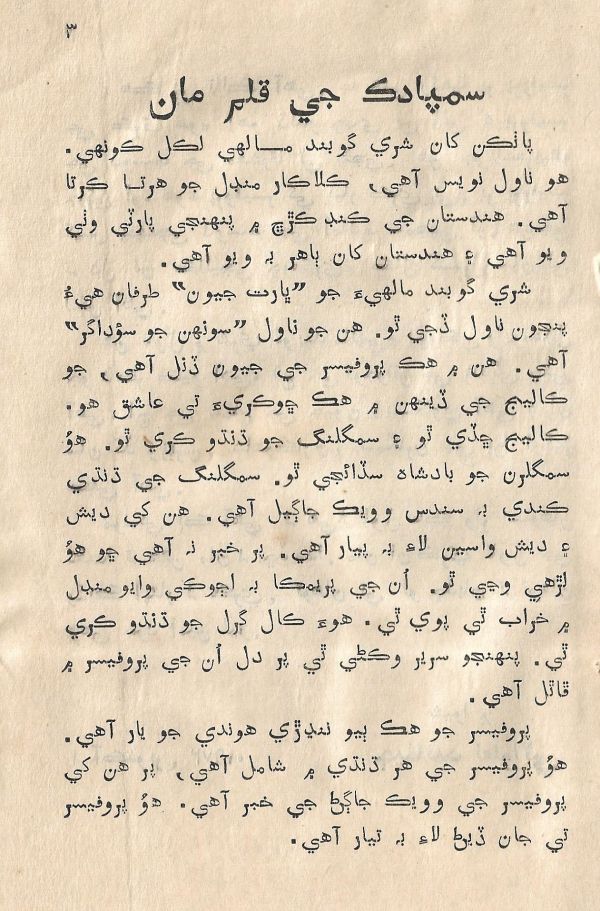 ٣
سمپادڪ جي قلم مان
پاٺڪن کان شري گوبند مـالهي لڪل ڪونهي.
هو ناول نويس آهي، ڪلاڪار منڊل جو هرتـا ڪرتا
آهي. هندستان جي ڪنڊ ڪڙڇ ۾ پنهنجي پارٽي وٺي
ويو آهي ۽ هندستان کان ٻاهر بہ ويو آهي.
شري گوبند مالهيءَ جو ”ڀارت جيون“ طرفان هيءُ
پنجون ناول ڏجي ٿو. هن جو ناول ”سونهن جو سؤداگر“
آهي. هن ۾ هڪ پروفيسر جي جيون ڏنل آهي، جو
ڪاليج جي ڏينهن ۾ هڪ ڇوڪريءَ تي عاشق هو.
ڪاليج ڇڏي ٿو ۽ سمگلنگ جو ڌنڌو ڪري ٿو. هوُ
سمگلرن جو بادشاہ سڏائجي ٿو. سمگلنگ جي ڌنڌي
ڪندي بہ سندس وويڪ جاڳيل آهي. هن کي ديش
۽ ديش واسين لاءِ بہ پيار آهي. پر خبر نہ آهي ڇو هوُ
لڙهي وڃي ٿو. اُن جي پريمڪا بہ اڄوڪي وايو منڊل
۾ خراب ٿي پوي ٿي. هوءَ ڪال گرل جو ڌنڌو ڪري
ٿي. پنهنجو سرير وڪڻي ٿي پر دل اُن جي پروفيسر ۾
ڦاٿل آهي.
پروفيسر جو هڪ ٻيو ننڍڙي هوندي جو يار آهي.
هوُ پروفيسر جي هر ڌنڌي ۾ شامل آهي، پر هن کي
پروفيسر جي وويڪ جاڳڻ جي خبر آهي. هوُ پروفيسر
تي جان ڏيڻ لاءِ بہ تيار آهي.